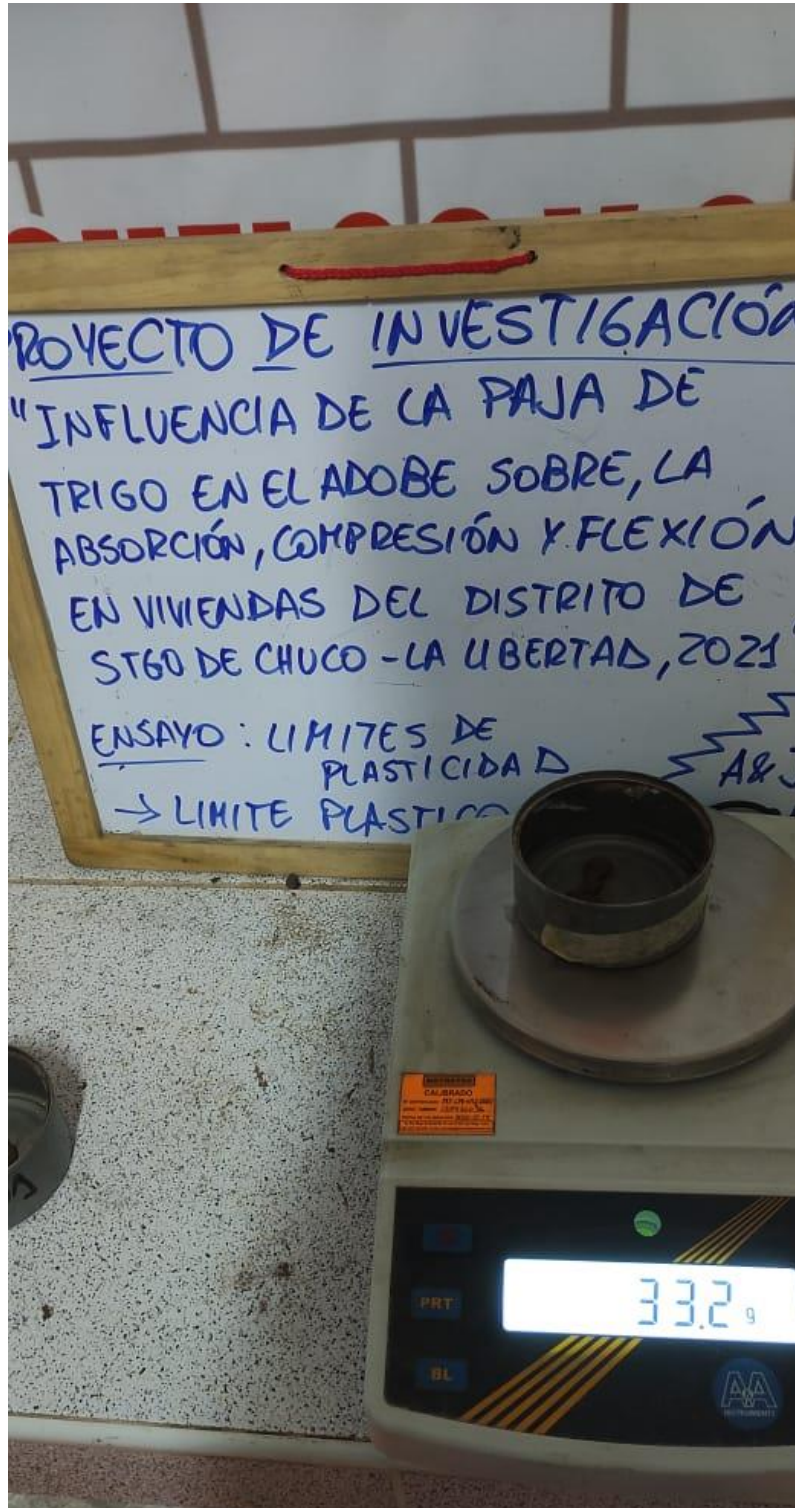 PROYECTO DE INVESTIGACIÓN
"INFLUENCIA DE LA PAJA DE
TRIGO EN EL ADOBE SOBRE, LA
ABSORCIÓN, COMPRESIÓN Y FLEXIÓN
EN VIVIENDAS DEL DISTRITO DE
STGO DE CHUCO - LA LIBERTAD, 2021"
ENSAYO: LIMITES DE
PLASTICIDAD
A&J
→ LIMITE PLASTICO
CALIBRADO
PRT
33.2 g
BL
A&A
INSTRUMENTS